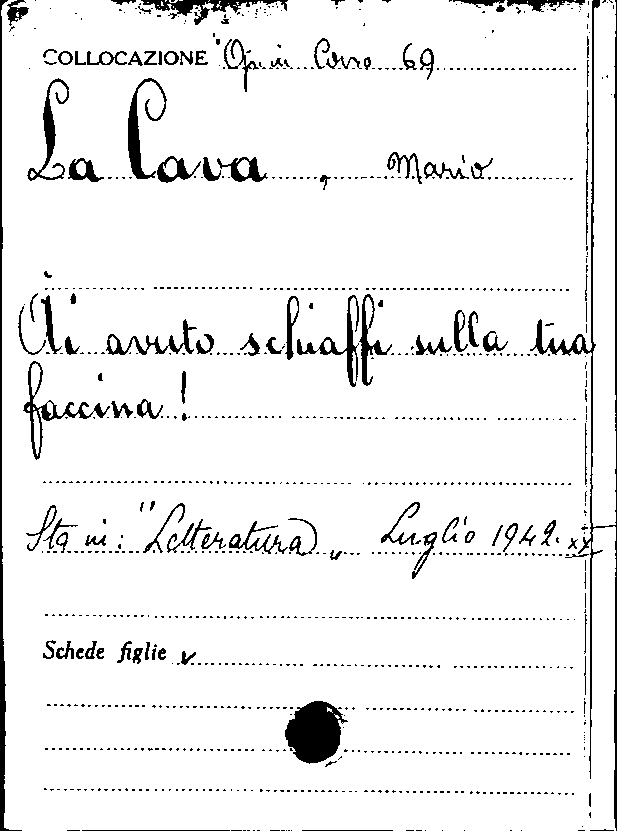 COLLOCAZIONE Op. in Corso 69
La Cava, Mario
Ài avuto schiaffi sulla tua
faccina!
Sta in: "Letteratura„ Luglio 1942. XX
Schede figlie v